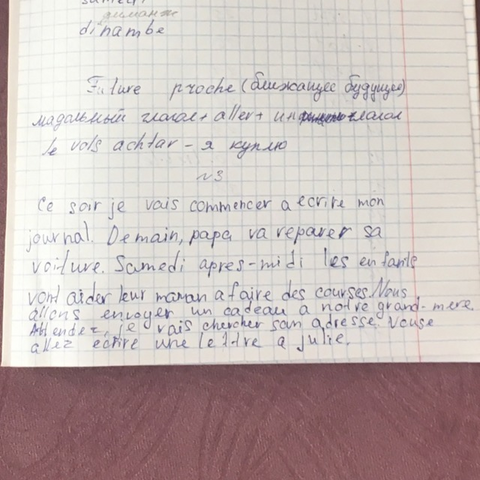 samedi
диманж
dinambe
Future proche (ближайщее будущее)
мадальный глагол + aller + ин глагол
le vals achtar - я куплю
№3
Ce soir je vais commencer a ecrire mon
journal. Demain, papa va reparer sa
voiture. Samedi apres-midi les enfants
vont aider leur maman a faire des courses. Nous
allons envoyer un cadeau a notre grand-mere.
Attendez, je vais chercher san adresse. Vouse
allez ecrire une lettre a julie.